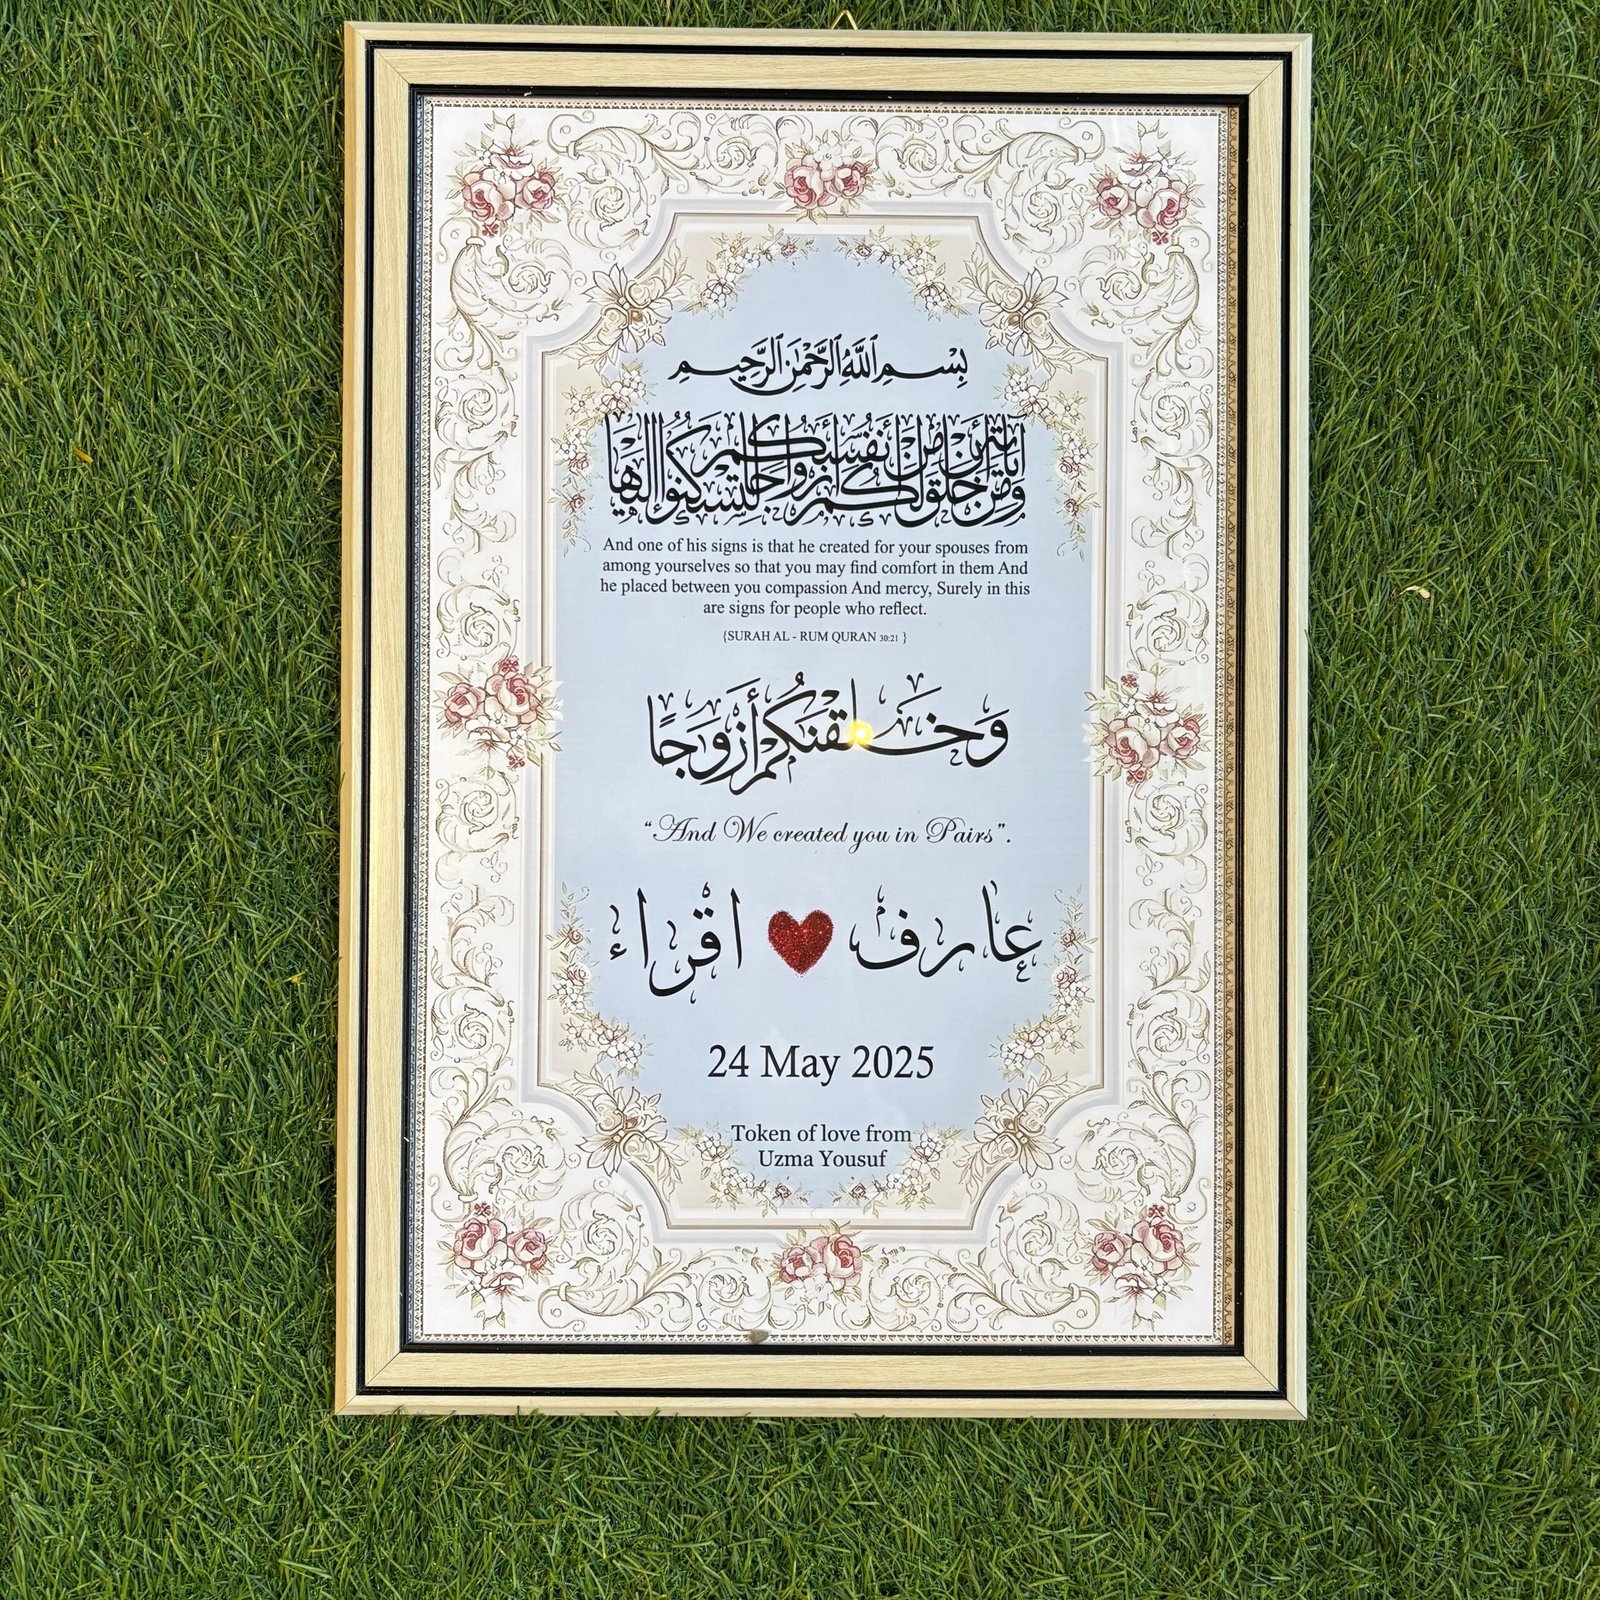 بِسْمِ اللَّهِ الرَّحْمَٰنِ الرَّحِيمِ
وَمِنْ آيَاتِهِ أَنْ خَلَقَ لَكُم مِّنْ أَنفُسِكُمْ أَزْوَاجًا لِّتَسْكُنُوا إِلَيْهَا
And one of his signs is that he created for your spouses from
among yourselves so that you may find comfort in them And
he placed between you compassion And mercy, Surely in this
are signs for people who reflect.
{SURAH AL - RUM QURAN 30:21 }
وَخَلَقْنَكُمْ أَزْوَجًا
“And We created you in Pairs”.
عارف اقراء
24 May 2025
Token of love from
Uzma Yousuf